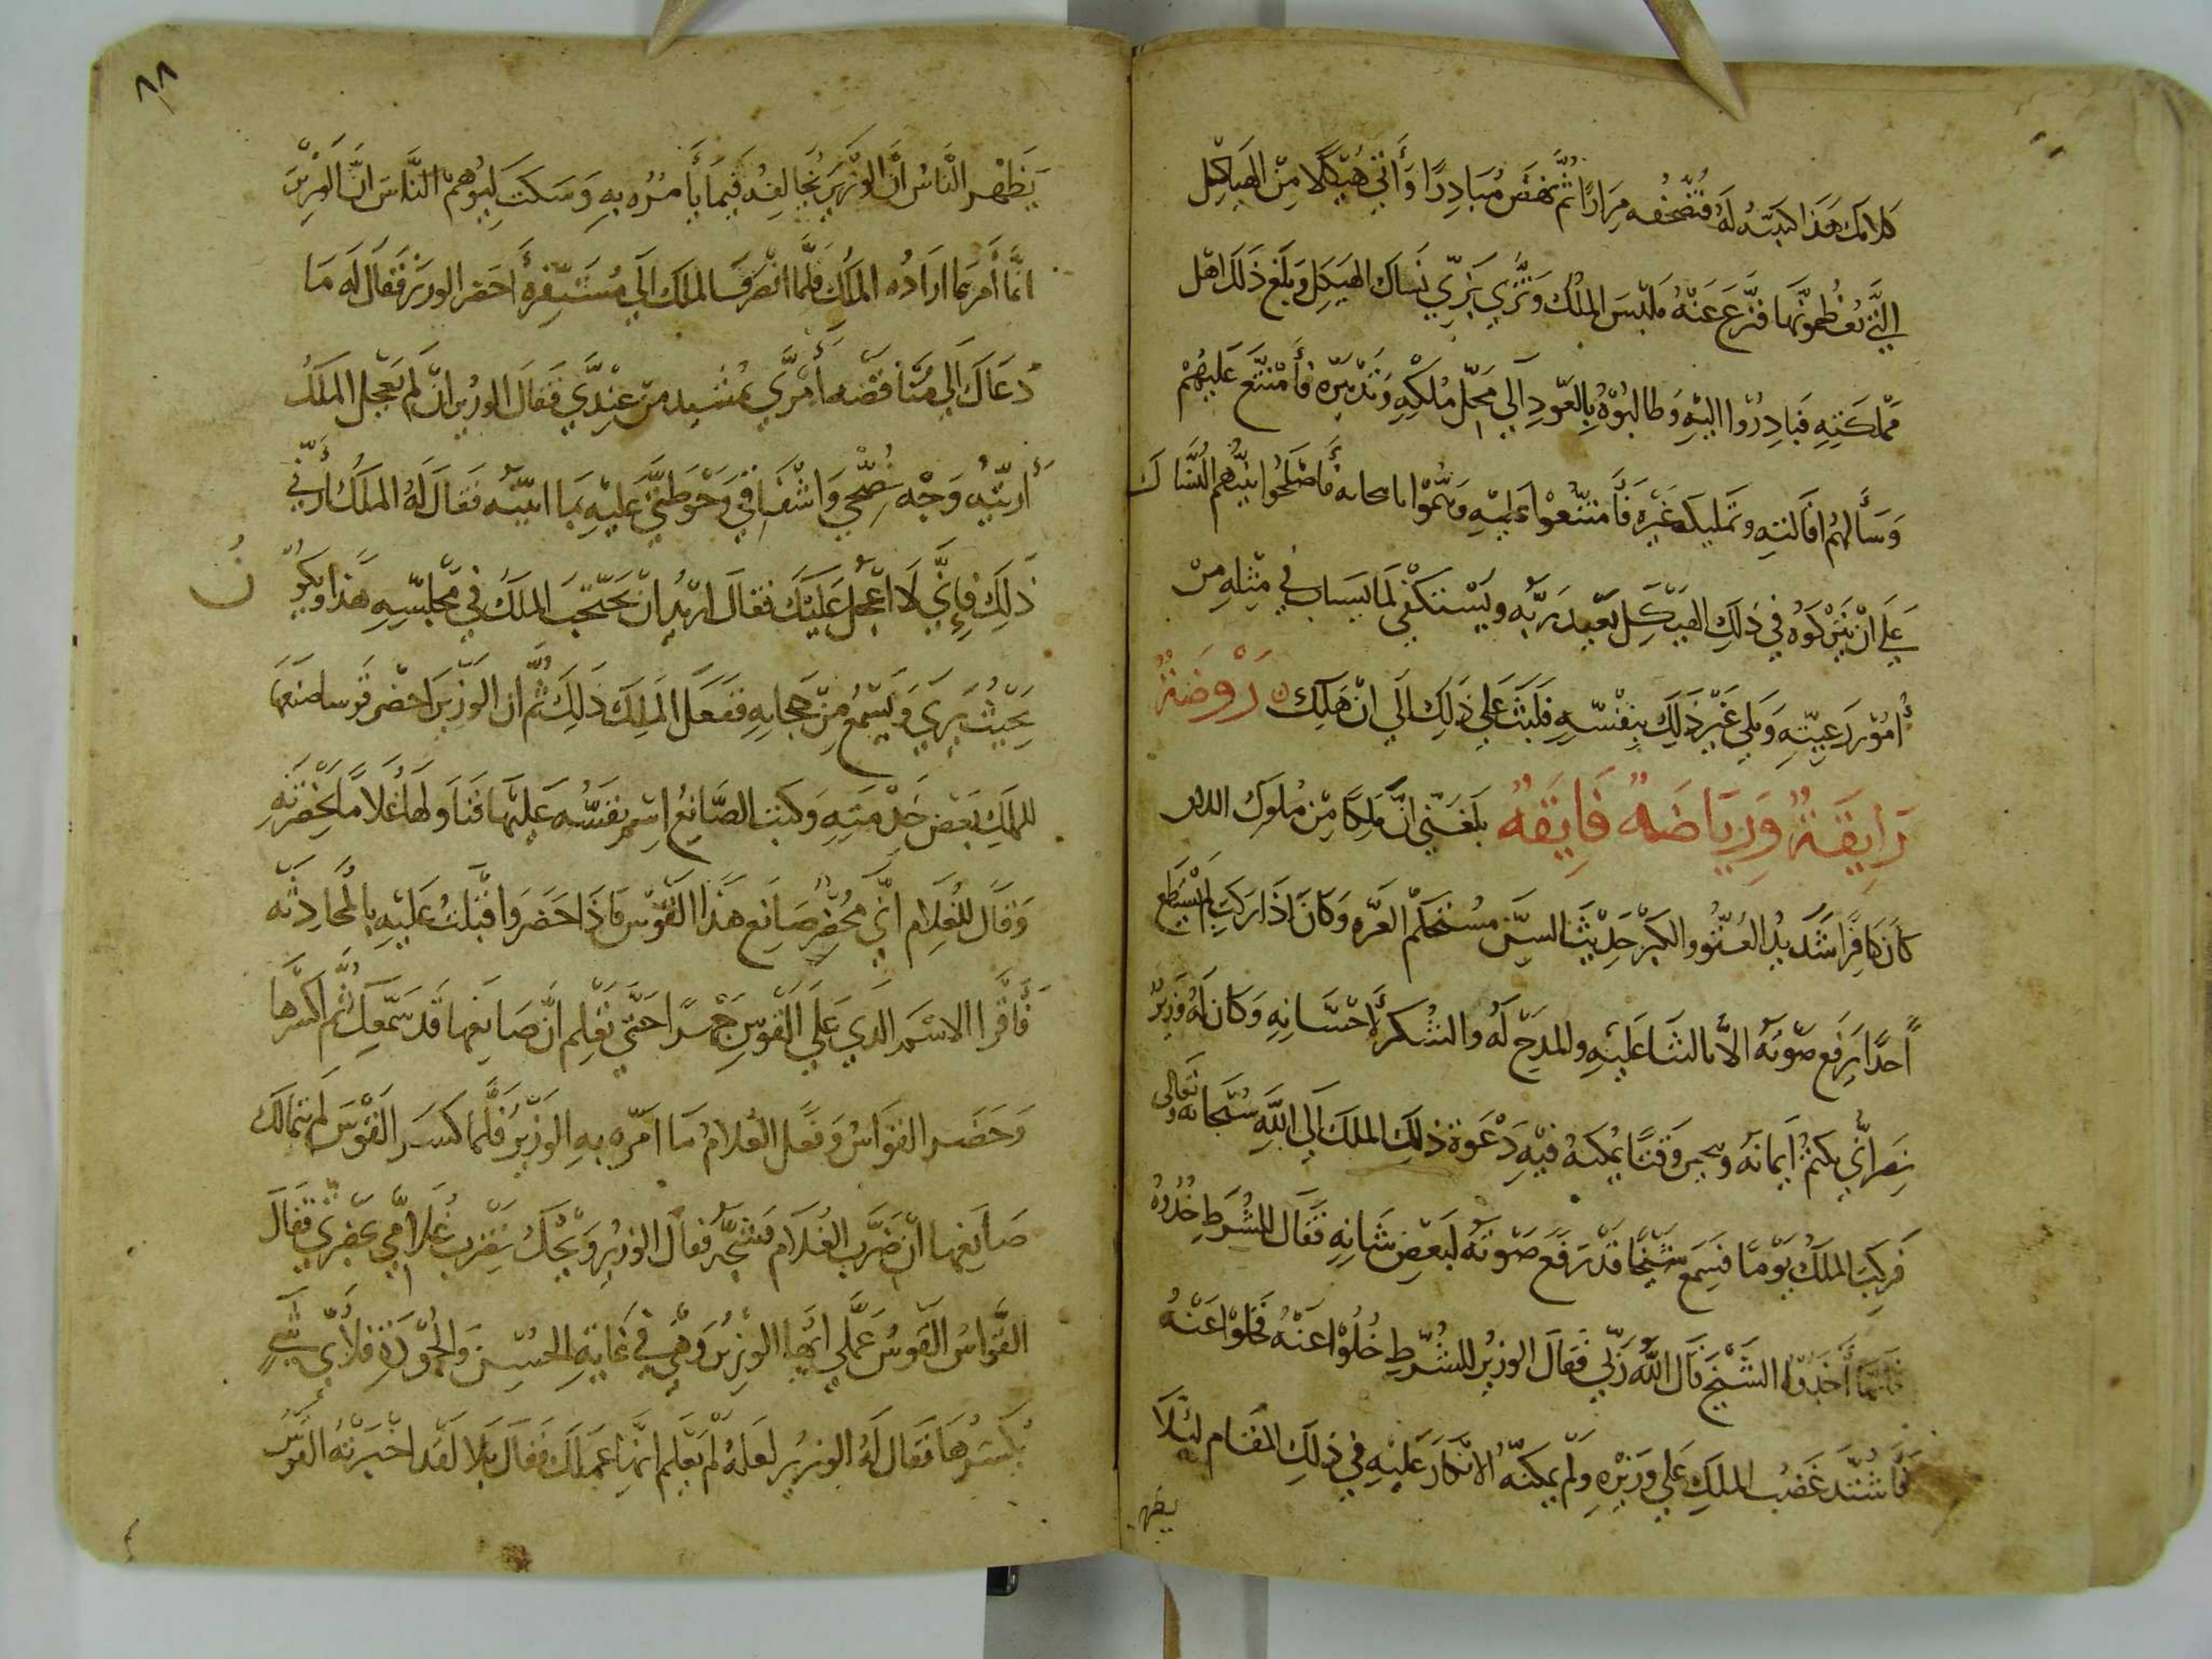 كلامك هذا كتبته له فتصحفه مرارًا ثُمَّ نهض مُبادِرًا وَأتي هَيْكلًا مِنْ الهَياكِل
التَّي يُعَظّمونَها فنزع عَنْهُ مَلبَس المُلك وَتَزَّي بزيّ نساك الهيكل وبَلَغ ذَلكَ اهْل
مَمْلكتِهِ فَبادرُوا اليْهِ وَطالبُوهُ بِالعَودِ الَي مَحِلّ مُلكِهِ وَتَدْبيره فأمْتنَع عَليْهمْ
وَسَألهُم اقالته وتمليك غَيْره فَأمتنَّعُوا عَليْهِ وهَمُّوا بامحانه فأصْلحُوا بَيْنهم النُسَّاك
عَلَي انْ يَتركوُه في ذلِك الهَيْكَلِ يَعْبد رَبّه ويَسْتكفي لمَا يسَاب في مِثلِهِ مِنْ
أمُور رَعيّتِهِ وَيلي غَيْر ذَلِكَ بنَفْسِهِ فلبَث عَلي ذلِك الَي انْ هَلك ۞ رَوْضَةٌ
رَايقةٌ وَرِيَاضَةٌ فَايقةٌ بَلغَنِي انَّ مَلِكًا مِنْ مُلوك الدار
كَانَ كافِرًا شَديدُ العُتُّو والكبْر حَديْثَ السِنّ مُسْتحكم الغرّه وَكانَ اذَا ركبَ لمْ يَسْتطع
أحدًا يَرفع صَوتَهُ الاَّ بالثنَا عَليْهِ والمدَح لهُ والشُكر لأحْسَانِهِ وَكان لهُ وَزيْرٌ
نصراني يكتم أيمانهُ ويتحين وَقتًا يُمكنهُ فيْهِ دَعْوة ذلِكَ الملك الَي اللَّهِ سُبْحانه وتعالى
فَركِبَ الملكُ يوْمًا فسَمع شَيْخًا قدْ رَفعَ صَوْته لبَعْضِ شَانِهِ فَقَال للشُرط خُذُوهُ
فَلَمَّا أخَذُوا الشَيْخ قال اللَّهُ رَبّي فقال الوزيرُ للشُرطِ خُلوْا عَنْهُ فخلوْا عَنْهُ
فَأشْتَد غَضَبُ الملِكِ عَلي وَزيْرهِ وَلمْ يمكنّهُ الانْكَارَ عَليْهِ في ذلِكَ المقَام ليَلَا
يظهر
٨٨
يَظهر النَّاسُ انَّ الوَزيْرَ يُخالِفهُ فيْمَا يَأمُرُه بِهِ وَسَكتَ ليُوهِم النَّاسَ انَّ الوَزيرَ
انَّما أمَر بما ارَادُه الملك فلمَّا انصَرفَ الملك الَي مُسْتقِرّهِ أحضر الوزير فقال له مَا
دَعَاك الَي مُنَاقضَه أمْرَي بمشهد مِنْ عَبْدَّي فقال الوزير ان لم يَعْجل الملكُ
أريْتُه وَجْه نُصْحِي وَاشفاقي وَحَوْطتي عَليْهِ بمَا اتيتهُ فقَالَ لَهُ الملكُ أرِنّي
ذَلِكَ فإنَّي لا اعْجلُ عَليْكَ فقَالَ اريْدُ انْ يَحْتَجب الملكُ في مَجْلسِهِ هَذا ويكونُ
بَحَيْثُ يَرَي وَيسْمَع مِنْ حجابهِ ففعَل المَلِك ذَلِكَ ثُمَّ ان الوزيرَ احْضرَ قوسا صنعها
للملِك بعض خَدْمَتِهِ وَكتبَ الصَّانعُ اسْم نفسَّه عَليْها فناوَلها غُلاَمًا بحضرته
وَقالَ للغُلام انّي مُحْضِر صَانِع هَذا القوْس فاذا حَضرَ واقبَلتُ عَليْهِ بالمُحادِثَه
فَأقرا الاسْم الذي عَلي القوْسِ جَهْرًا حَتَّي تعْلم انَّ صَانِعها قد سَمَعك ثُمَّ اكسرْها
وَحَضر القوَاسُ وَفعَل الغُلام مَا امَره بِهِ الوزيرُ فلَّما كسَرَ القوْسَ لم يتمالك
صَانِعها ان ضَرب الغُلام فشَجَّهُ فقال الوزير وَيْحكَ تَضرب غُلامِي بحَضرتي فقالَ
القوَّاسُ القوسُ عَمَلي ايُّها الوزيرُ وَهي في غَايةِ الحُسْن وَالجُوْدَةِ فلأَيّ شَيٍ
يَكسَرُها فقال لهُ الوزير لعَلهُ لم يَعْلم انَّها عَملك فقال بَلا لقد اخْبَرتْهُ القوْسُ